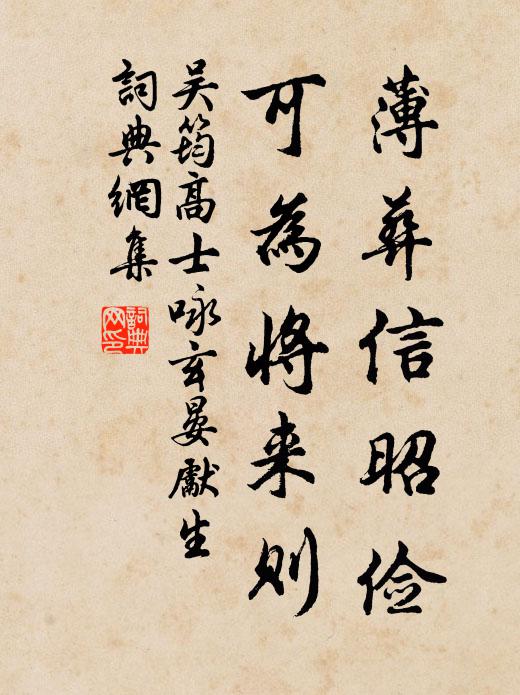 薄葬信昭俭
可為将来则
吴筠高士咏玄晏献生
詞典網集
詞典网印